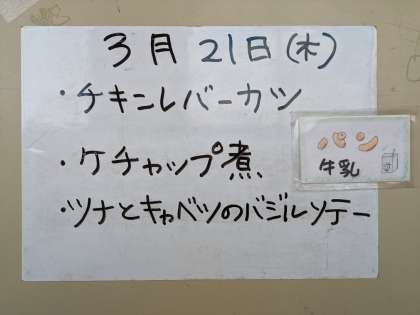 3月21日(木)
・チキンレバーカツ
・ケチャップ煮
・ツナとキャベツのバジルソテー
パン
牛乳